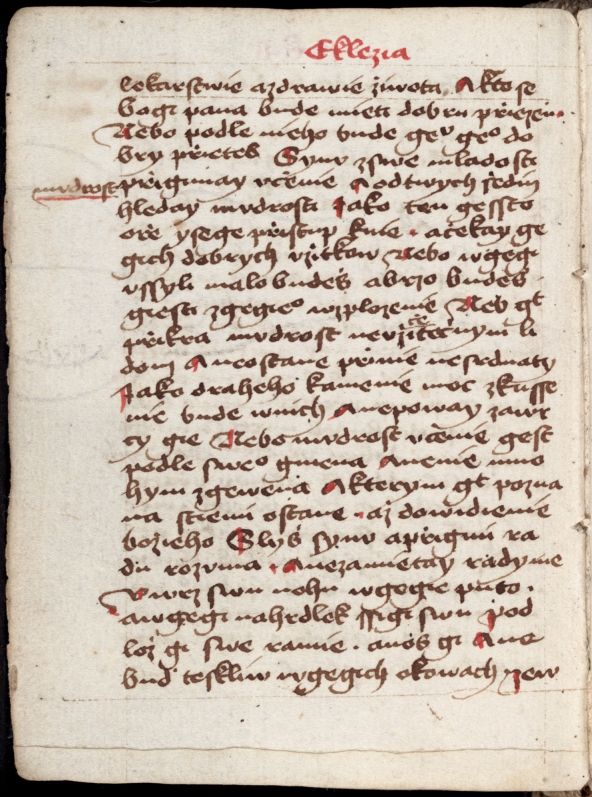 Eklezia
lekarstwie a zdrawie žiwota Akto se
bogi pana bude mieti dobru přiezeň
Nebo podle nieho bude geho do
bry přietel Synu z swe mladosti
mudrost přigimay učenie A od twych šedin
hleday mudrosti Jako ten gessto
oře y sege přistup knie a čekay ge
gich dobrych užitkow Nebo w gegi
ussyli malo budeš a brzo budeš
giesti z gegieo wzplozenie Neb gt
přikra mudrost neužitečnym li
dem A neostane přinie nesrdnaty
Jako draheho kamenie moc zkusse
nie bude w nich A nepoway zawr
cy gie Nebo mudrost učenie gest
podle sweo gmena A nenie mno
hym zgewena A kterym gt pozna
na stiemi ostane až do widienie
božieho Slyš synu a přigmi ra
du rozuma A nezamietay rady me
Uwrz swu nohu w gegie puto
a w gegi nahrdlek ssigi swu pod
lož gi swe ramie a nos gi A ne
bud teskliw w gegich okowach